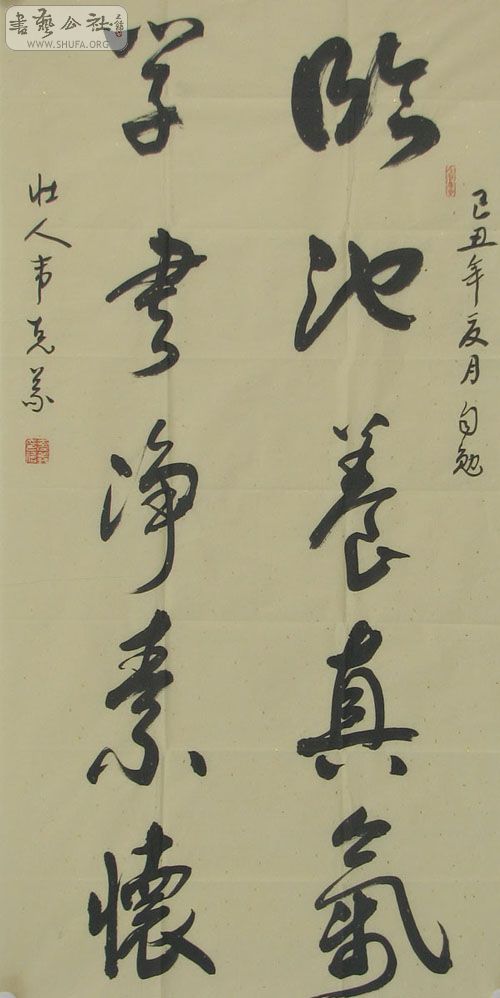 書藝公社
WWW.SHUFA.ORG
己丑年夏月自勉
臨池養真氣
学書净素懷
壮人韦克義